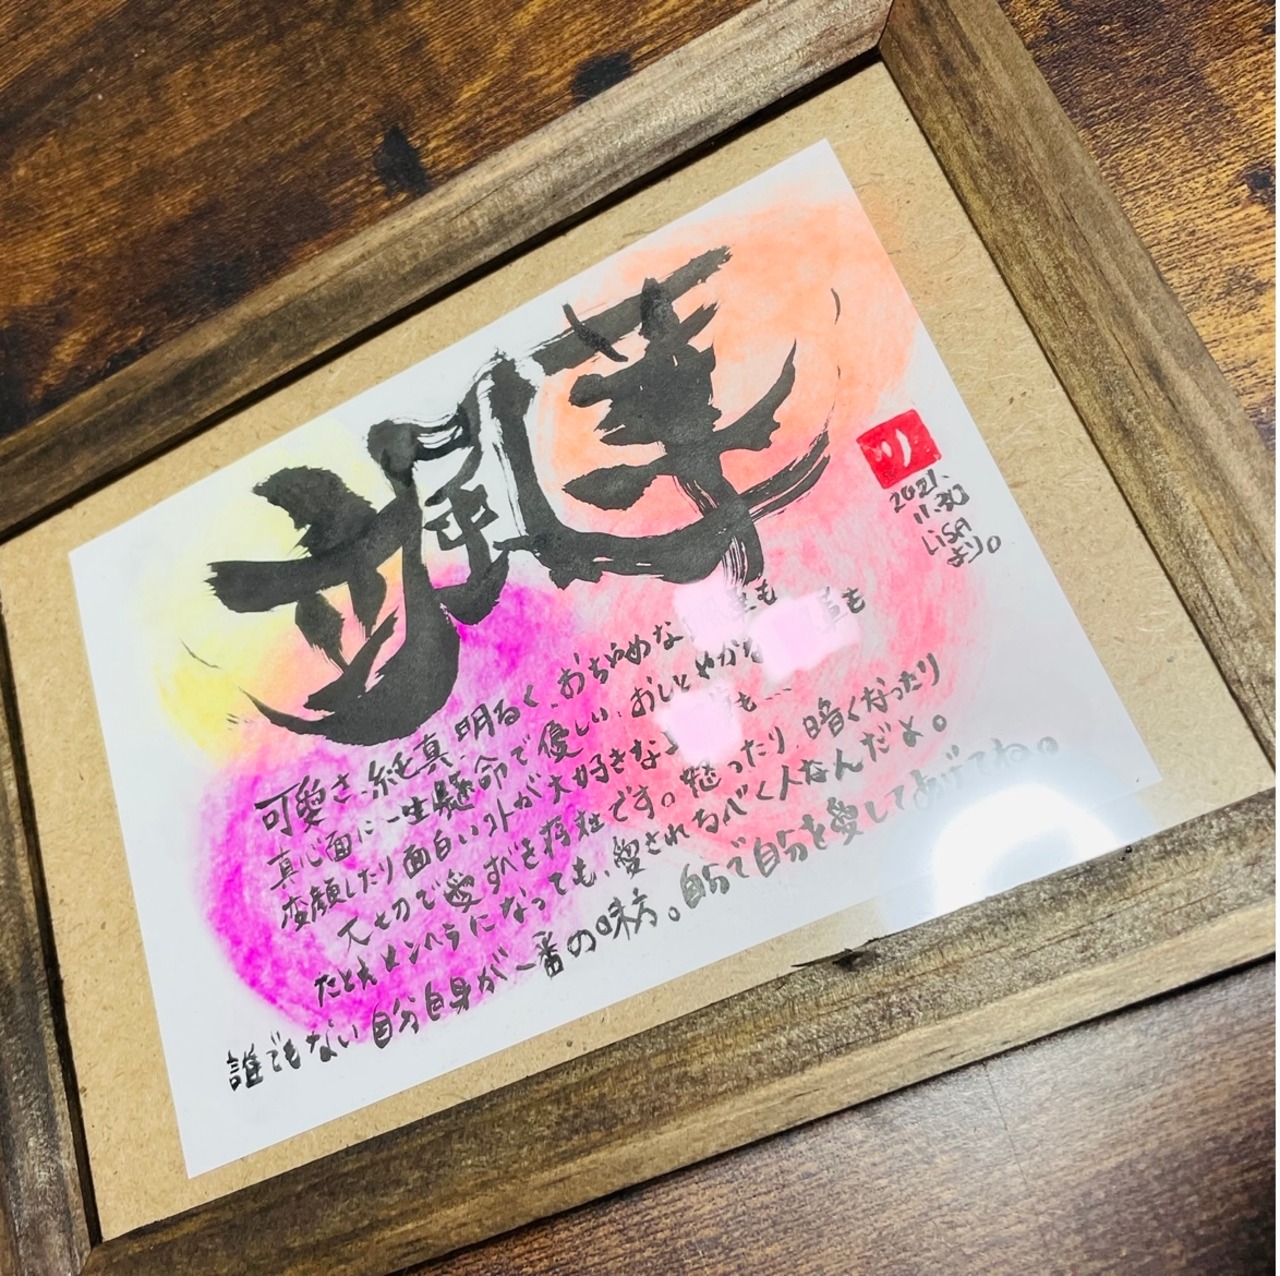 颯華
リ
2021.
11.30
LiSA
より。
可愛さ、純真、明るく、おちゃめな 里も
真心面に一生懸命で優しい、おしとやかな 里も
変顔したり面白いコトが大好きな も…
大切で愛すべき存在です。怒ったり、暗くなったり
たとえメンヘラになっても、愛されるべく人なんだよ。
誰でもない自分自身が一番の味方。自分で自分を愛してあげてね。